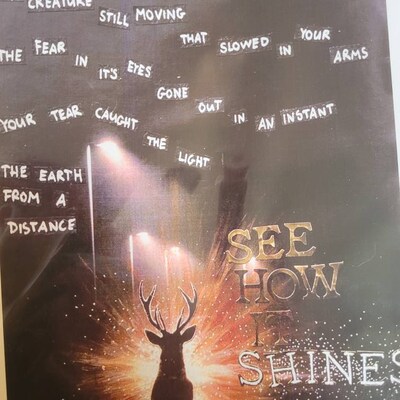 CREATURE STILL MOVING
THAT SLOWED IN YOUR ARMS
THE FEAR IN IT'S EYES
GONE OUT IN AN INSTANT
YOUR TEAR CAUGHT THE LIGHT
THE EARTH
FROM A
DISTANCE
SEE
HOW
IT
SHINES